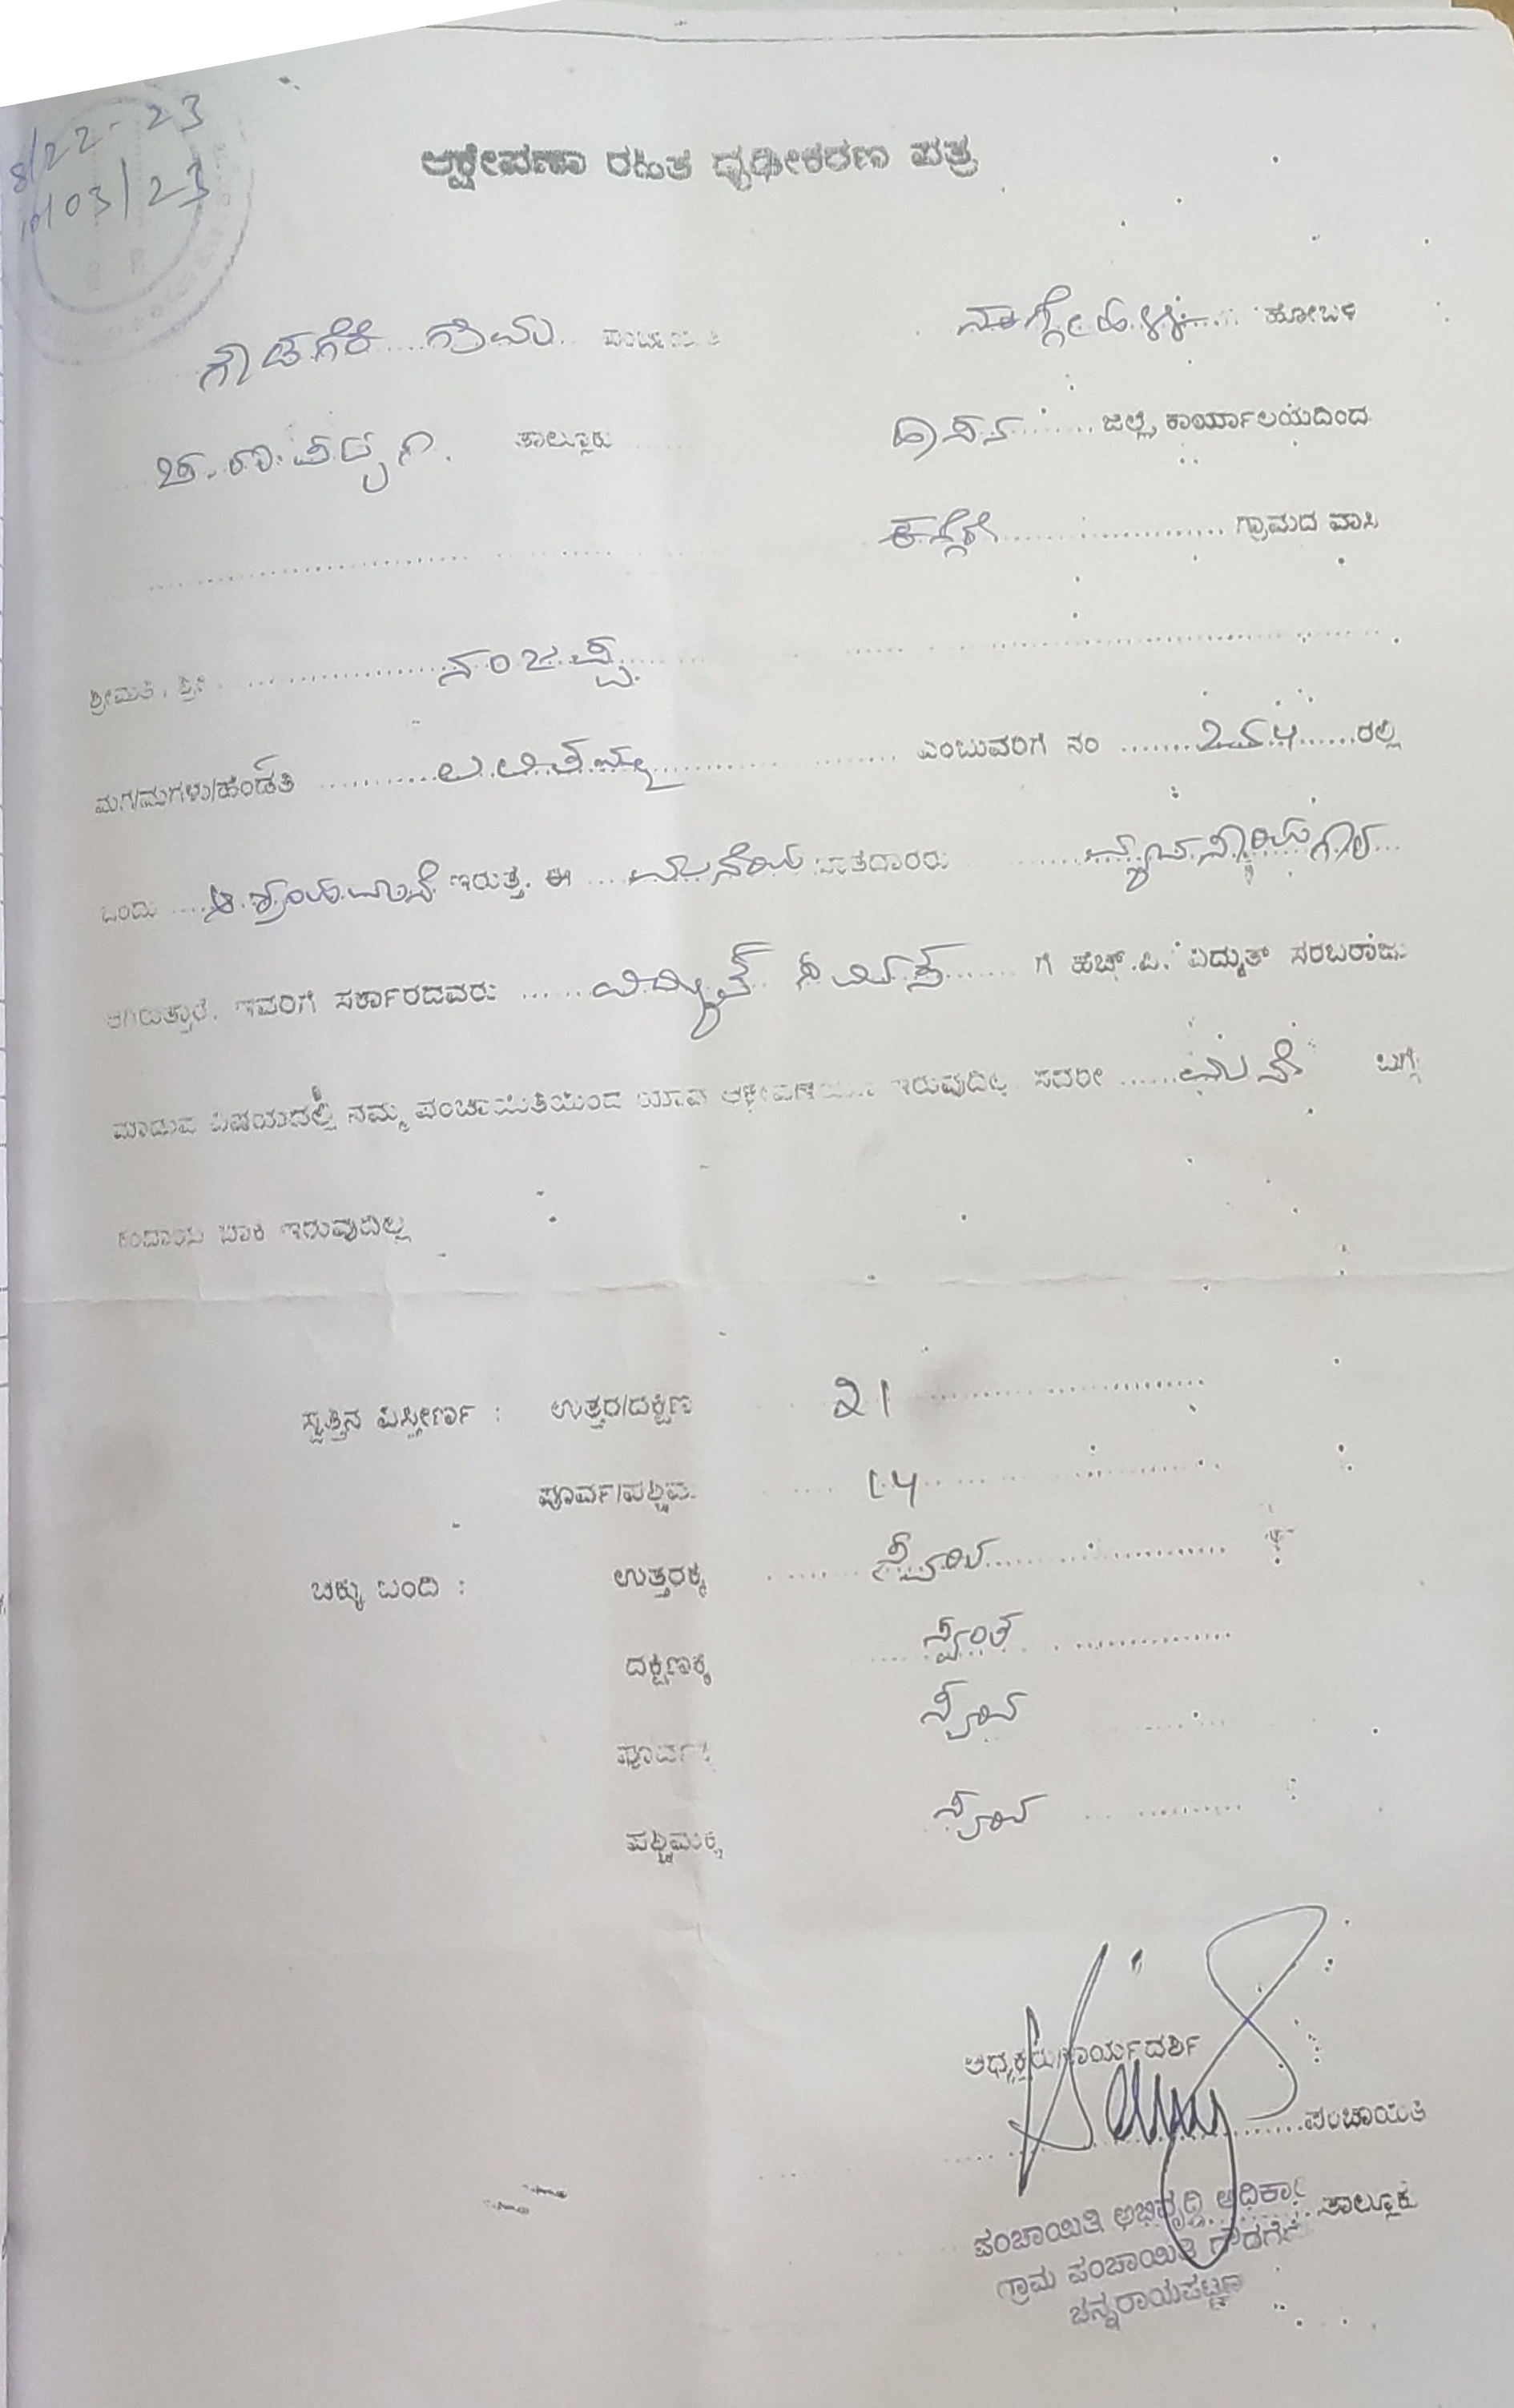 8/22-23
10/03/23
ಆಕ್ಷೇಪಣಾ ರಹಿತ ಧೃಢೀಕರಣ ಪತ್ರ
ಗೌಡಗೆರೆ ಗ್ರಾಮ ಪಂಚಾಯತಿ ಹೋಬಳಿ
ಚ.ರಾ.ಪಟ್ಟಣ ತಾಲ್ಲೂಕು ಹಾಸನ ಜಿಲ್ಲೆ, ಕಾರ್ಯಾಲಯದಿಂದ
ಗ್ರಾಮದ ವಾಸಿ
ಶ್ರೀಮತಿ, ಶ್ರೀ ನಂಜಪ್ಪ
ಮಗ/ಮಗಳು/ಹೆಂಡತಿ ಲಲಿತಮ್ಮ ಎಂಬುವರಿಗೆ ನಂ ರಲ್ಲಿ
ಒಂದು ಆಶ್ರಯಮನೆ ಇರುತ್ತೆ. ಈ ಮನೆಯ ಖಾತದಾರರು
ಆಗಿರುತ್ತಾರೆ. ಇವರಿಗೆ ಸರ್ಕಾರದವರು ವಿದ್ಯುತ್ ಗೆ ಹೆಚ್.ಪಿ. ವಿದ್ಯುತ್ ಸರಬರಾಜು
ಮಾಡುವ ವಿಷಯದಲ್ಲಿ ನಮ್ಮ ಪಂಚಾಯಿತಿಯಿಂದ ಯಾವ ಆಕ್ಷೇಪಣೆಯೂ ಇರುವುದಿಲ್ಲ ಸದರೀ ಮನೆ ಬಗ್ಗೆ
ಕಂದಾಯ ಬಾಕಿ ಇರುವುದಿಲ್ಲ
ಸ್ವತ್ತಿನ ವಿಸ್ತೀರ್ಣ : ಉತ್ತರ/ದಕ್ಷಿಣ 21
ಪೂರ್ವ/ಪಶ್ಚಿಮ 14
ಚಕ್ಕು ಬಂದಿ : ಉತ್ತರಕ್ಕೆ ಸ್ವಂತ
ದಕ್ಷಿಣಕ್ಕೆ ಸ್ವಂತ
ಪೂರ್ವಕ್ಕೆ ಸ್ವಂತ
ಪಶ್ಚಿಮಕ್ಕೆ ಸ್ವಂತ
ಅಧ್ಯಕ್ಷರು/ಕಾರ್ಯದರ್ಶಿ
ಪಂಚಾಯಿತಿ
ತಾಲ್ಲೂಕು
ಪಂಚಾಯಿತಿ ಅಭಿವೃದ್ಧಿ ಅಧಿಕಾರಿ
ಗ್ರಾಮ ಪಂಚಾಯಿತಿ ಗೌಡಗೆರೆ
ಚನ್ನರಾಯಪಟ್ಟಣ